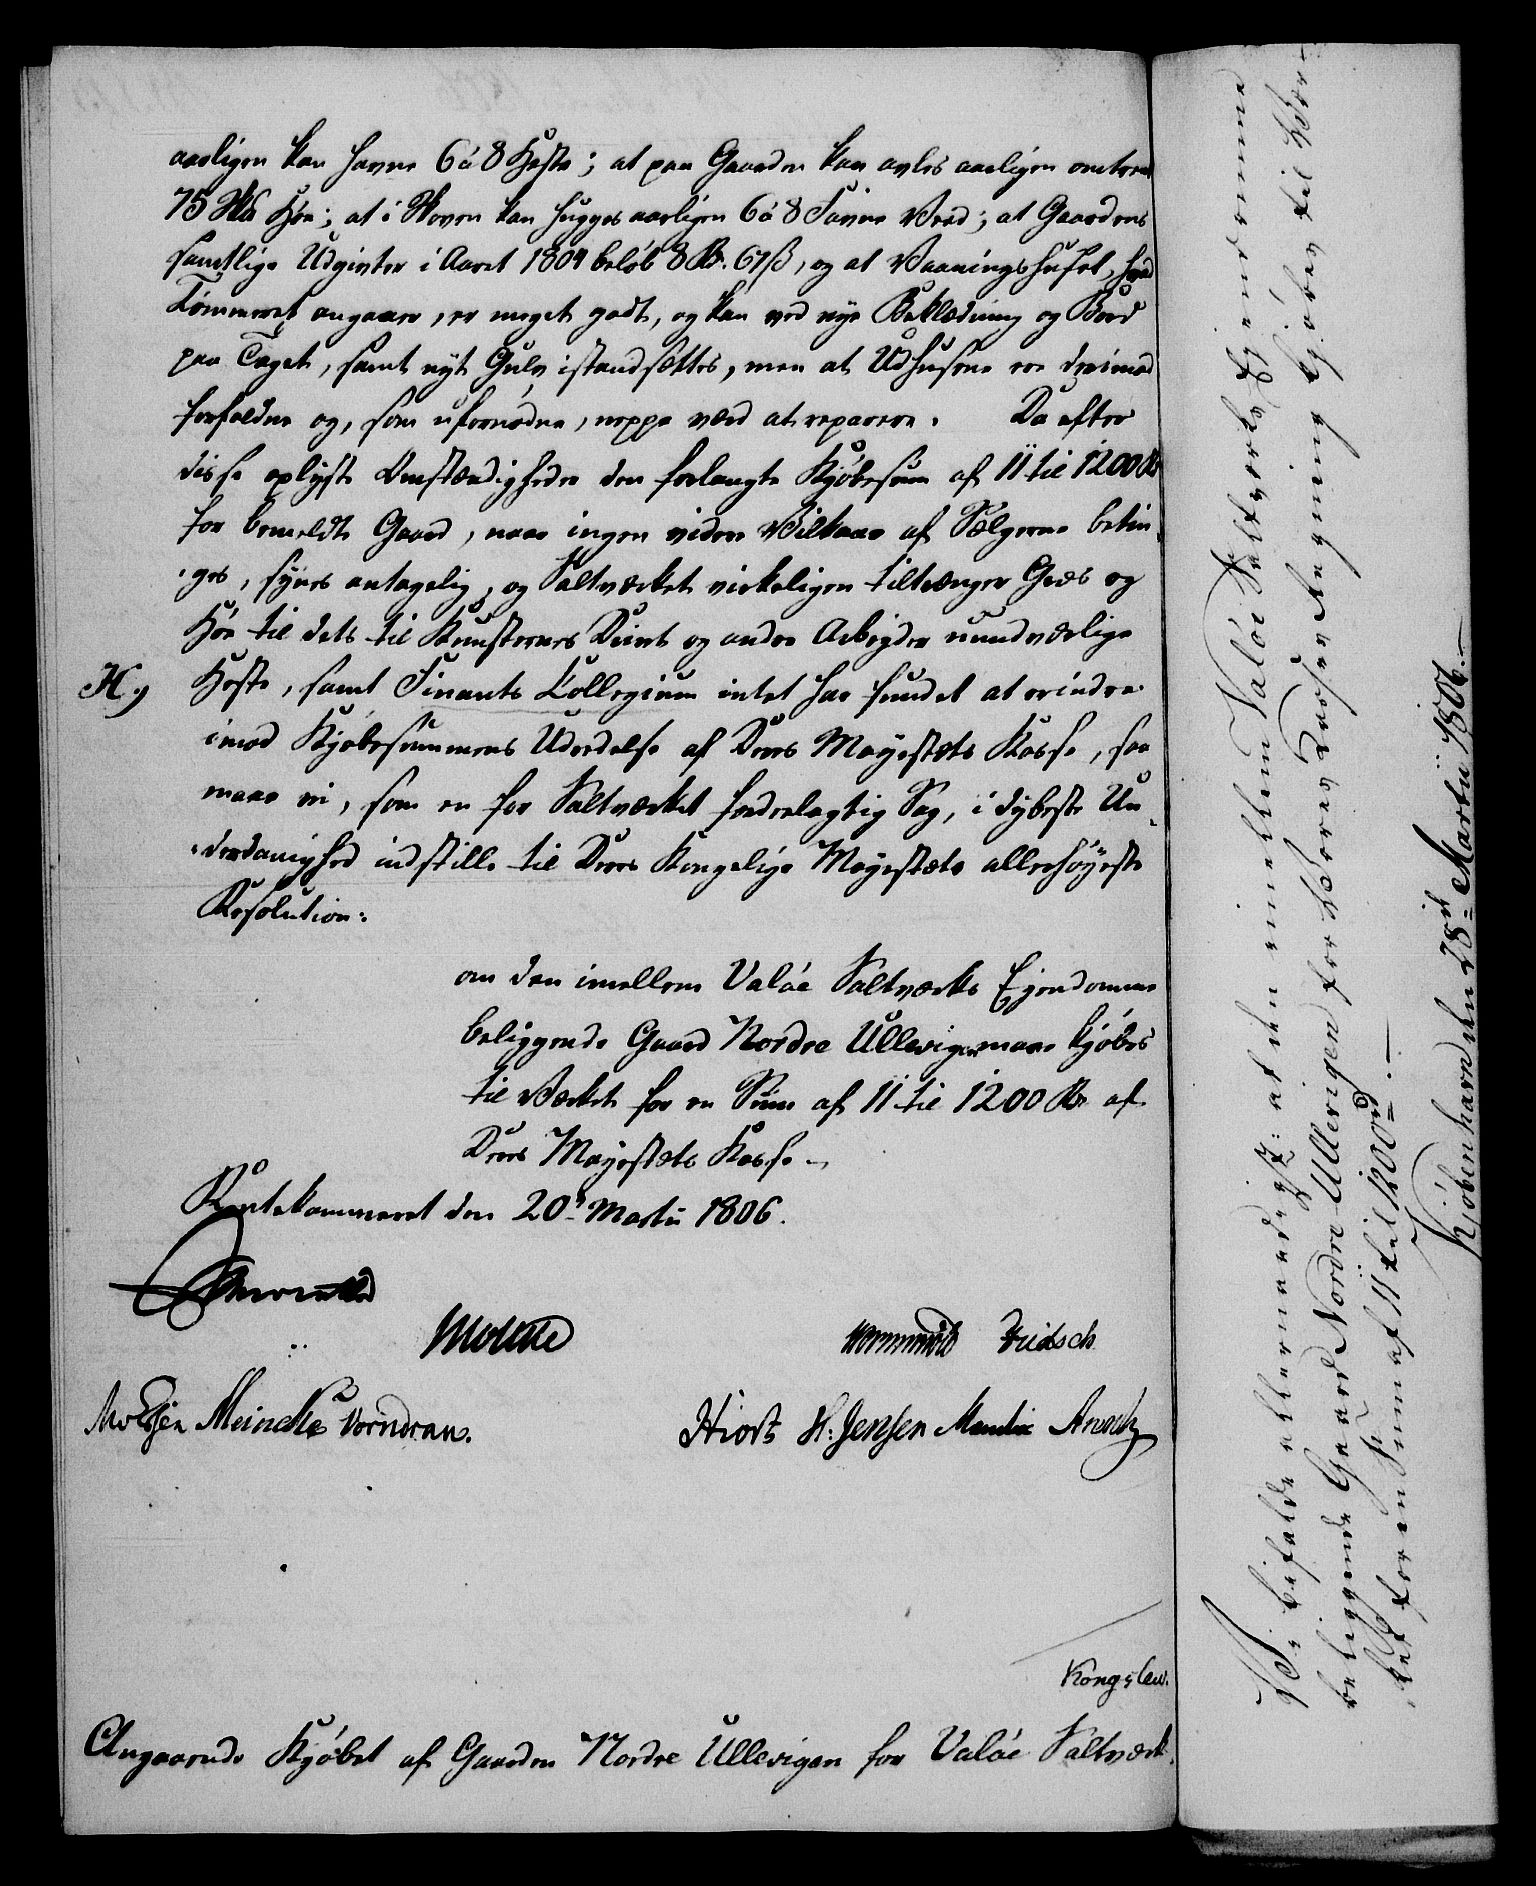 aarligen kan havne 6 á 8 Heste; at paa Gaarden kan avles aarligen omtrent
75 Sk℔ Høe; at i Skoven kan hugges aarligen 6 á 8 Favne Veed; at Gaardens
samtlige Udgivter i Aaret 1804 beløb 8 Rd. 67 ß, og at Vaaningshuset, hvad
Tømmeret angaaer, er meget godt, og kan ved nye Beklædning og Bord
paa Taget, samt nyt Gulv istandsættes, men at Udhusene ere derimod
forfaldne og, som ufornødne, neppe værd at reparere. Da efter
disse oplyste Omstændigheder den forlangte Kjøbesum af 11 til 1200 Rd
for bemeldte Gaard, naar ingen videre Vilkaar af Sælgerne betin-
-ges, synes antagelig, og Saltværket virkeligen tiltrænger Græs og
Høe til dets til Kunsternes Drivt og andre Arbeyder uundværlige
H.) Heste, samt Finants Kollegium intet har fundet at erindre
imod Kjøbesummens Uderedelse af Deres Mayestæts Kasse, saa
maae vi, som en for Saltværket fordeelagtig Sag, i dybeste Un-
-derdanighed indstille til Deres Kongelige Mayestæts allerhøyeste
Resolution:
om den imellem Valøe Saltværks Ejendomme
beliggende Gaard Nordre Ullevigen maae kjøbes
til Værket for en Sum af 11 til 1200 Rd af
Deres Mayestæts Kasse
Rentekammeret den 20de Martii 1806.
Moltke
Wormskiold Fridsch
Meincke Vorndran.
Hiort H: Jensen Arentz
Kongslew.
Angaaende Kjøbet af Gaarden Nordre Ullevigen for Valøe Saltværk.
Vi befalde allernaadigst: at den imellem Valøe Saltverks Ejendomme
beliggende Gaard Nordre Ullevigen for Vores Kasses Regning kjøbes til Vær-
ket for en Summa af 11 til 1200 rd.
Kjøbenhavn den 28de Martii 1806.